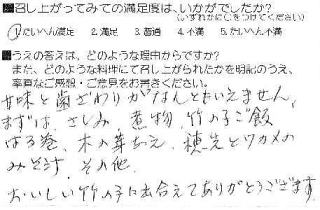 ■召し上がってみての満足度は、いかがでしたか?
(いずれかに○をつけてください)
1.たいへん満足 2.満足 3.普通 4.不満 5.たいへん不満
■うえの答えは、どのような理由からですか?
また、どのような料理にて召し上がられたかを明記のうえ、
率直なご感想・ご意見をお書きください。
甘味と歯ざわりがなんともいえません。
まずは、さしみ、煮物、竹の子ご飯
はる巻、木の芽あえ、穂先とワカメの
みそ汁、その他、
おいしい竹の子に出合えてありがとうございます